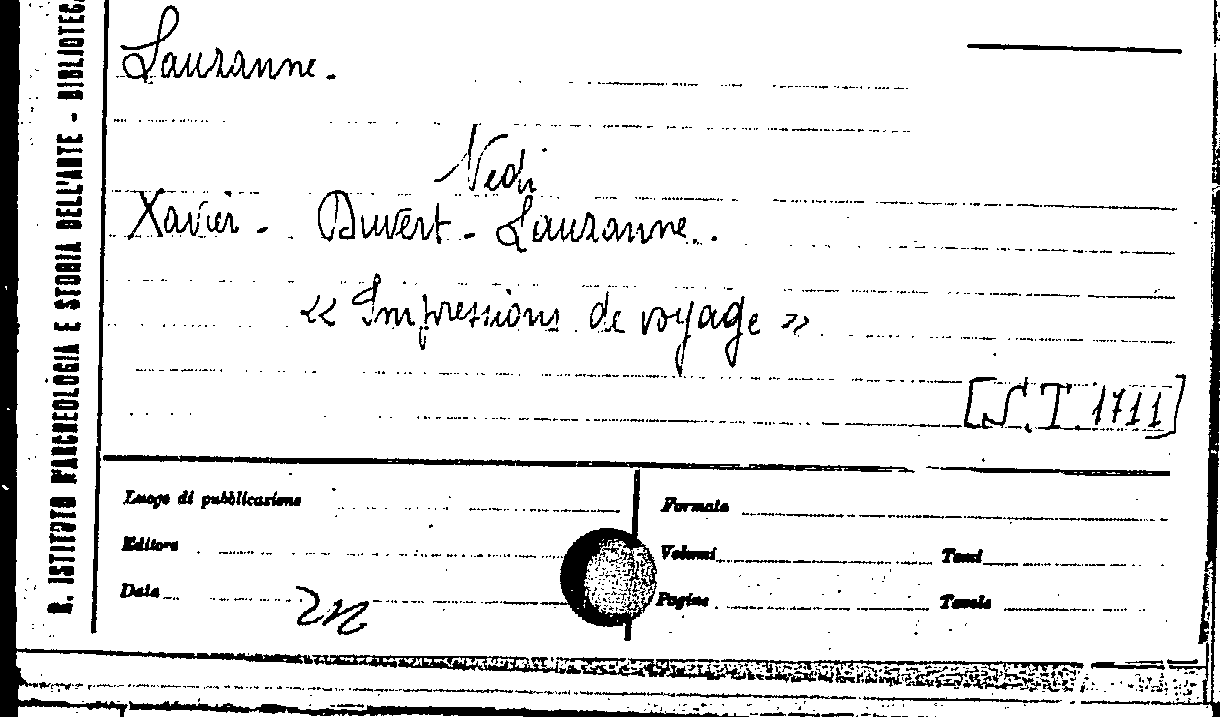 R. ISTITUTO D'ARCHEOLOGIA E STORIA DELL'ARTE - BIBLIOTECA
Lauzanne.
Vedi
Xavier - Duvert - Lauzanne.
« Impressions de voyage »
[S.T. 1711]
Luogo di pubblicazione
Formato
Editore
Volumi
Tomi
Data
Pagine
Tavole